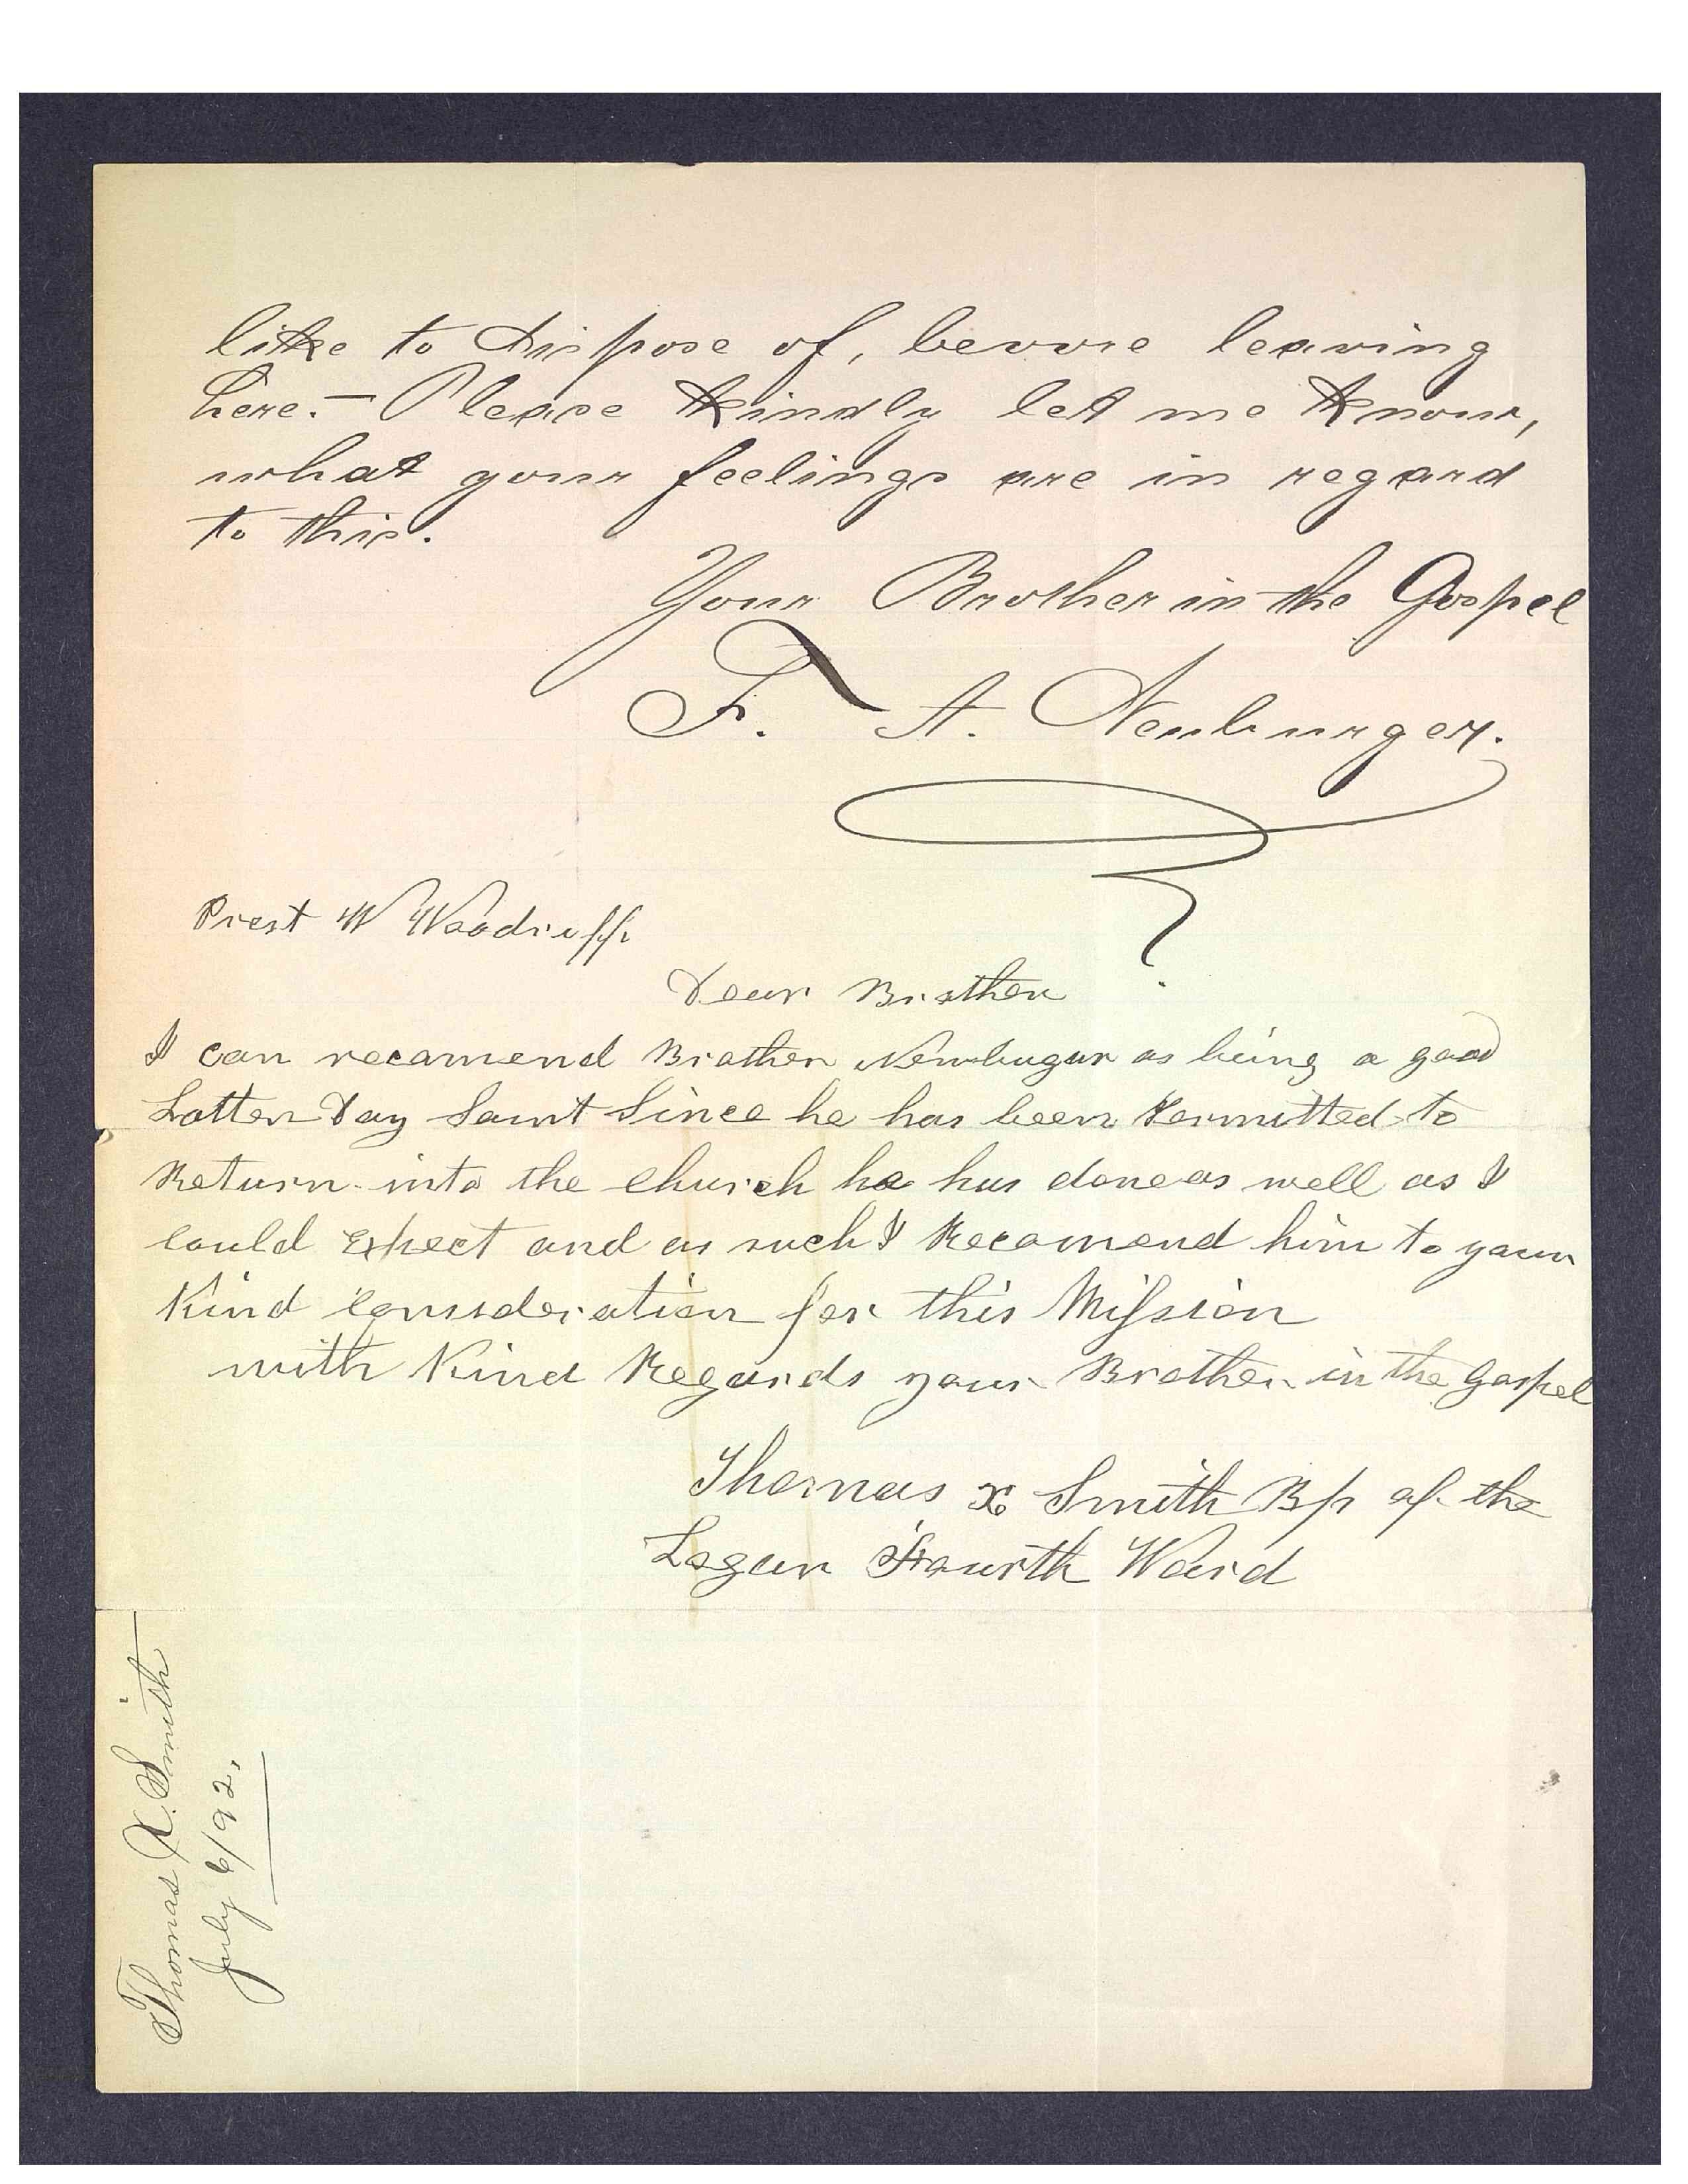 like to dispose of, bevore leaving
here. — Please kindly let me know,
what your feelings are in regard
to this.
Your Brother in the Gospel
F. A. Neuburger.
Prest W Woodruff
Dear Brother
I can recomend Brother Newbugar as being a good
Latter Day Saint Since he has been Permitted to
Return into the Church he has done as well as I
Could Expect and as such I Recomend him to your
Kind Consideration for this Mission
with Kind Regards your Brother in the Gospel
Thomas X Smith Bp of the
Logan Fourth Ward
Thomas X. Smith
July 6/92.